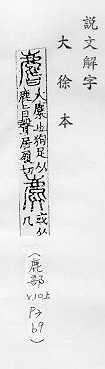 說文解字
大徐本
大麋也狗足从
鹿旨聲居履切
麂
或从
几
(鹿部
V10上